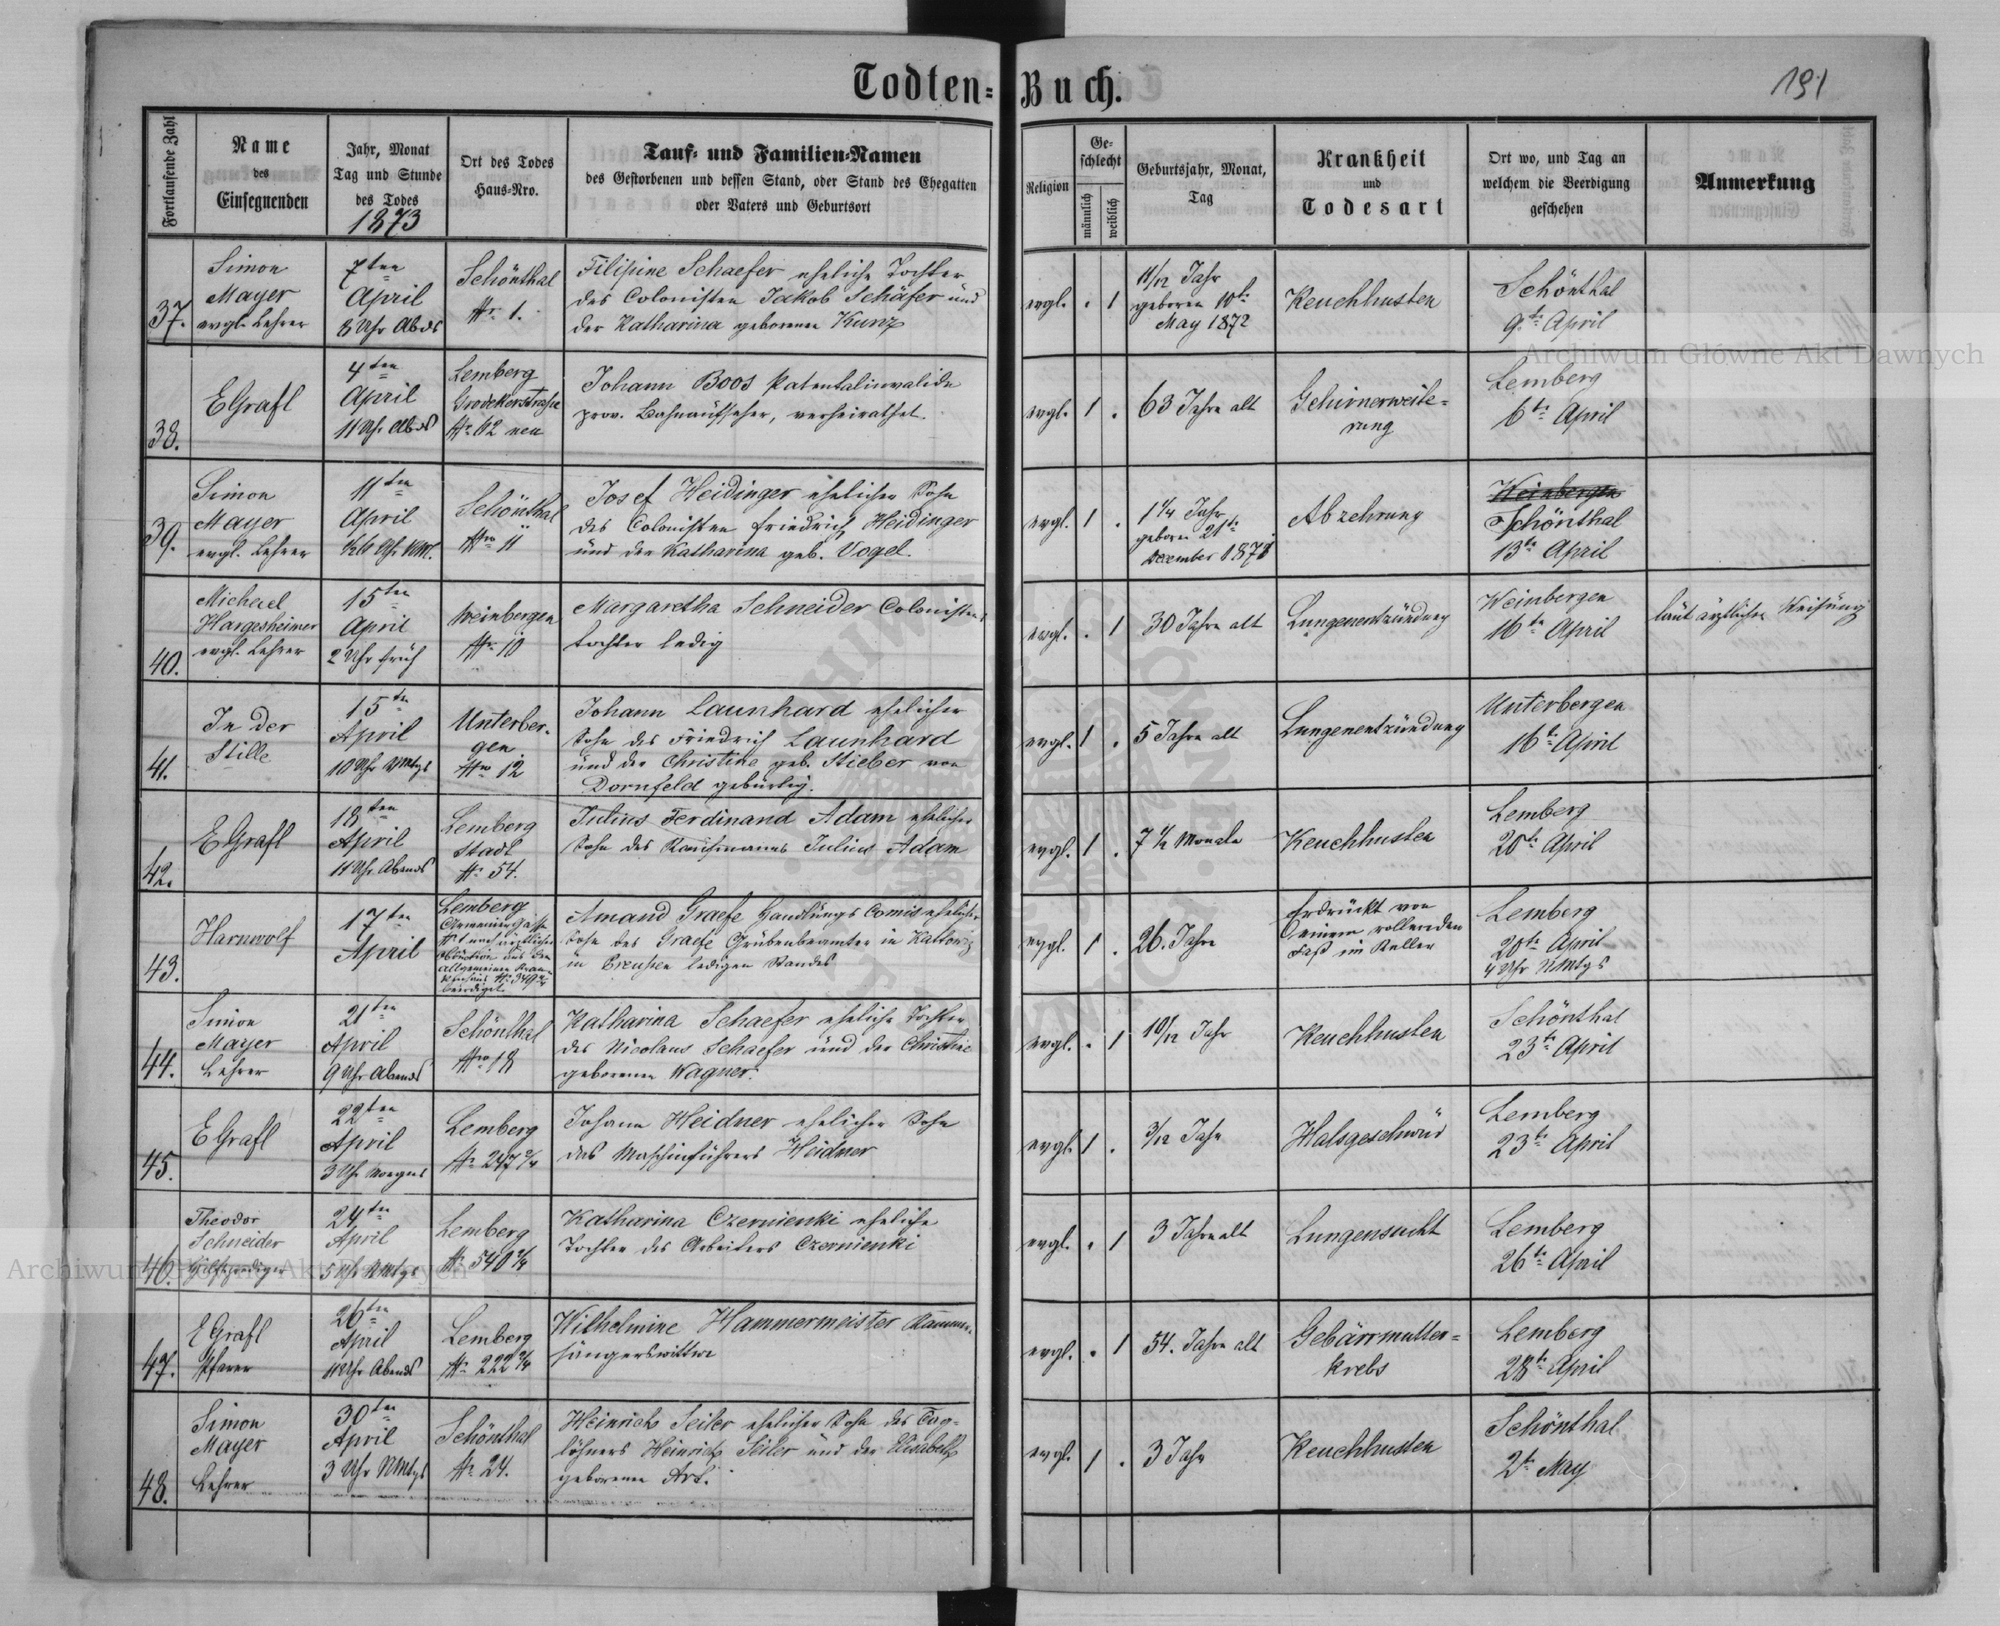 Todten-Buch.
191
Fortlaufende Zahl
Name
des
Einsegnenden
Jahr, Monat
Tag und Stunde
des Todes
1873
Ort des Todes
Haus-Nro.
Tauf- und Familien-Namen
des Gestorbenen und dessen Stand, oder Stand des Ehegatten
oder Vaters und Geburtsort
Religion
Ge-
schlecht
männlich
weiblich
Geburtsjahr, Monat,
Tag
Krankheit
und
Todesart
Ort wo, und Tag an
welchem die Beerdigung
geschehen
Anmerkung
37.
Simon
Mayer
evgl. Lehrer
7ten
April
8 Uhr Abds
Schönthal
Nr. 1.
Filipine Schaefer eheliche Tochter
des Colonisten Jakob Schäfer und
der Katharina geborenen Kunz
evgl. . 1
11/12 Jahr
geboren 10t
May 1872
Keuchhusten
Schönthal
9. tn April
38.
EGrafl
4ten
April
11 Uhr Abds
Lemberg
Grodekerstraße
Nr. 62 neu
Johann Boos Patentalinvalide
prov. Bahnaufseher, verheirathet.
evgl. 1 .
63 Jahre alt
Gehirnerweite-
rung
Lemberg
6tn April
39.
Simon
Mayer
evgl. Lehrer
11ten
April
Schönthal
Nro 11
Josef Heidinger ehelicher Sohn
des Colonisten Friedrich Heidinger
und der Katharina geb. Vogel.
evgl. 1 .
1 1/4 Jahr
geboren 21tn
December 1871
Abzehrung
Weinbergen
Schönthal
13tn April
40.
Michael
Hargesheimer
evgl. Lehrer
15ten
April
2 Uhr früh
Weinbergen
Nr. 10
Margaretha Schneider Colonisten
tochter ledig
evgl. . 1
30 Jahre alt
Lungenentzündung
Weinbergen
16tn April
laut ärztlicher Weisung
41.
In der
Stille
15tn
April
10 Uhr Vmtgs
Unterber-
gen
Nro 12
Johann Launhard ehelicher
Sohn des Friedrich Launhard
und der Christine geb. Stieber von
Dornfeld gebürtig.
evgl. 1 .
5 Jahre alt
Lungenentzündung
Unterbergen
16t April
42.
EGrafl
18ten
April
11 Uhr Abends
Lemberg
Stadt
Nr. 54.
Julius Ferdinand Adam ehelicher
Sohn des Kaufmanns Julius Adam
evgl. 1 .
7 1/2 Monate
Keuchhusten
Lemberg
20tn April
43.
Harnwolf
17ten
April
Lemberg
Nr 1 nach ärztlicher
Obduction aus dem
allgemeinen Kran-
beerdiget
Amand Graefe Handlungs Comis ehelicher
Sohn des Graefe Grubenbeamten in Kattowitz
in Preußen ledigen Standes
evgl. 1 .
26. Jahre
Erdrückt von
einem rollenden
Faß im Keller
Lemberg
20tn April
4 Uhr NMtgs
44.
Simon
Mayer
Lehrer
21ten
April
9 Uhr Abends
Schönthal
Nro 18
Katharina Schaefer eheliche Tochter
des Nicolaus Schaefer und der Christine
geborenen Wagner.
evgl. . 1
10/12 Jahr
Keuchhusten
Schönthal
23tn April
45.
EGrafl
22ten
April
3 Uhr Morgens
Lemberg
Nr. 247 2/4
Johann Heidner ehelicher Sohn
des Maschinführers Heidner
evgl. 1 .
3/12 Jahr
Halsgeschwür
Lemberg
23tn April
46.
Theodor
Schneider
Hilfsprediger
24ten
April
5 Uhr NMtgs
Lemberg
Nr. 540 2/4
Katharina Czernienki eheliche
Tochter des Arbeiters Czernienki
evgl. . 1
3 Jahre alt
Lungensucht
Lemberg
26tn April
47.
EGrafl
Pfarrer
26ten
April
11 Uhr Abends
Lemberg
Nr. 222 2/4
Wilhelmine Hammermeister Kammer-
sängerswittwe
evgl. . 1
54. Jahre alt
Gebärmutter-
krebs
Lemberg
28tn April
48.
Simon
Mayer
Lehrer
30ten
April
3 Uhr NMtgs
Schönthal
Nr. 24.
Heinrich Seiler ehelicher Sohn des Tag-
löhners Heinrich Seiler und der Elisabeth
geborenen Art.
evgl. 1 .
3 Jahr
Keuchhusten
Schönthal
2tn May
Archiwum Główne Akt Dawnych
Archiwum Główne Akt Dawnych